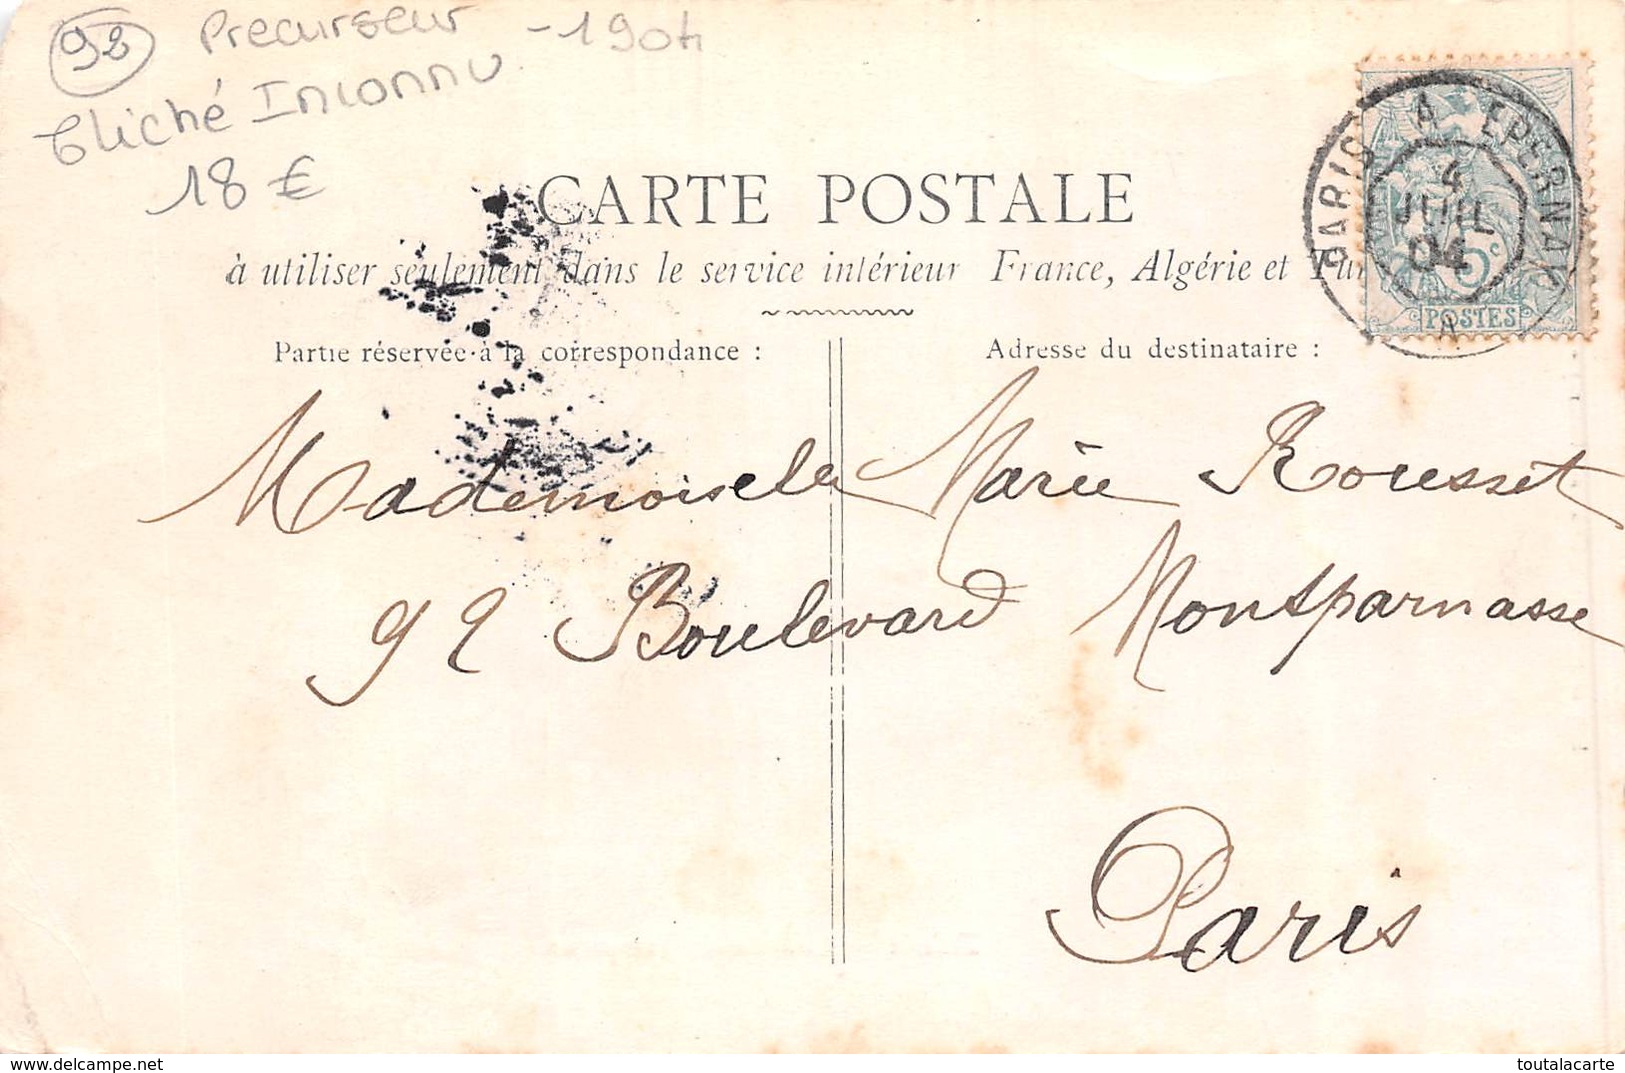 92 Precurseur - 1904
Cliché Inconnu
18 €
CARTE POSTALE
à utiliser seulement dans le service intérieur France, Algérie et Tu
Partie réservée à la correspondance :
Adresse du destinataire :
PARIS A EPERNAY
4
JUIL
04
A
5c
POSTES
Mademoiselle Marie Rousset
92 Boulevard Montparnasse
Paris
delcampe.net
toutalacarte